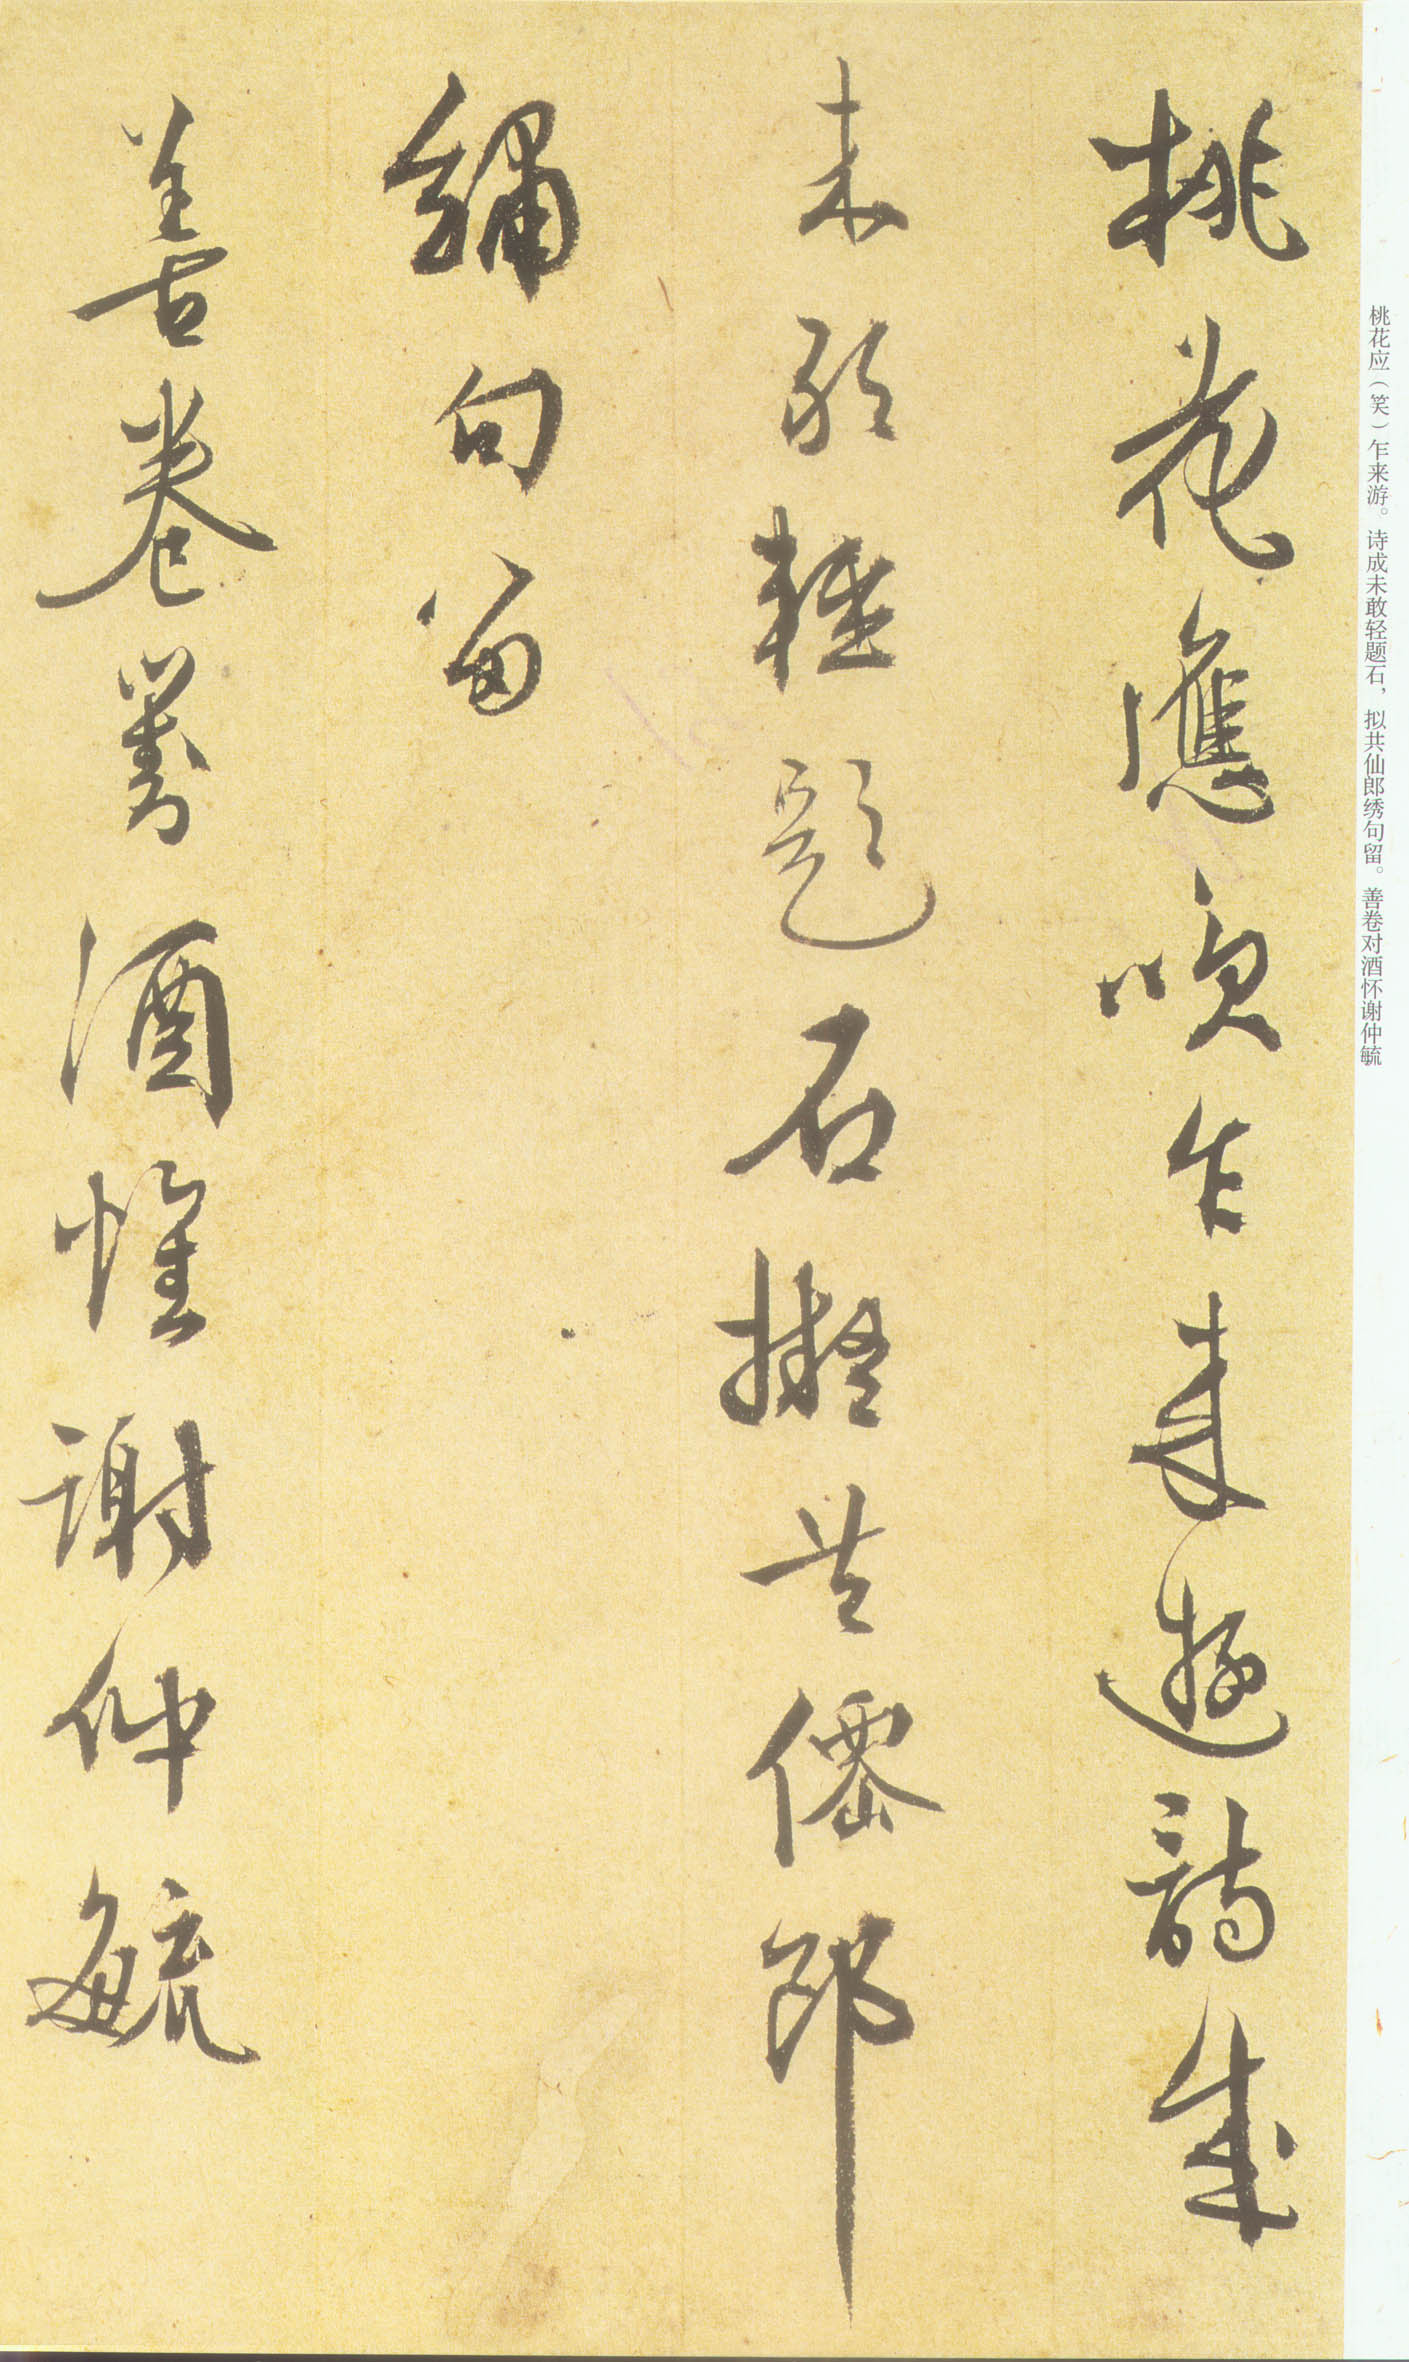 桃花應咲乍来遊詩成
未敢輕題石擬共僊郎
繡句留
善卷對酒懷謝仲毓
桃花应（笑）乍来游。诗成未敢轻题石，拟共仙郎绣句留。善卷对酒怀谢仲毓